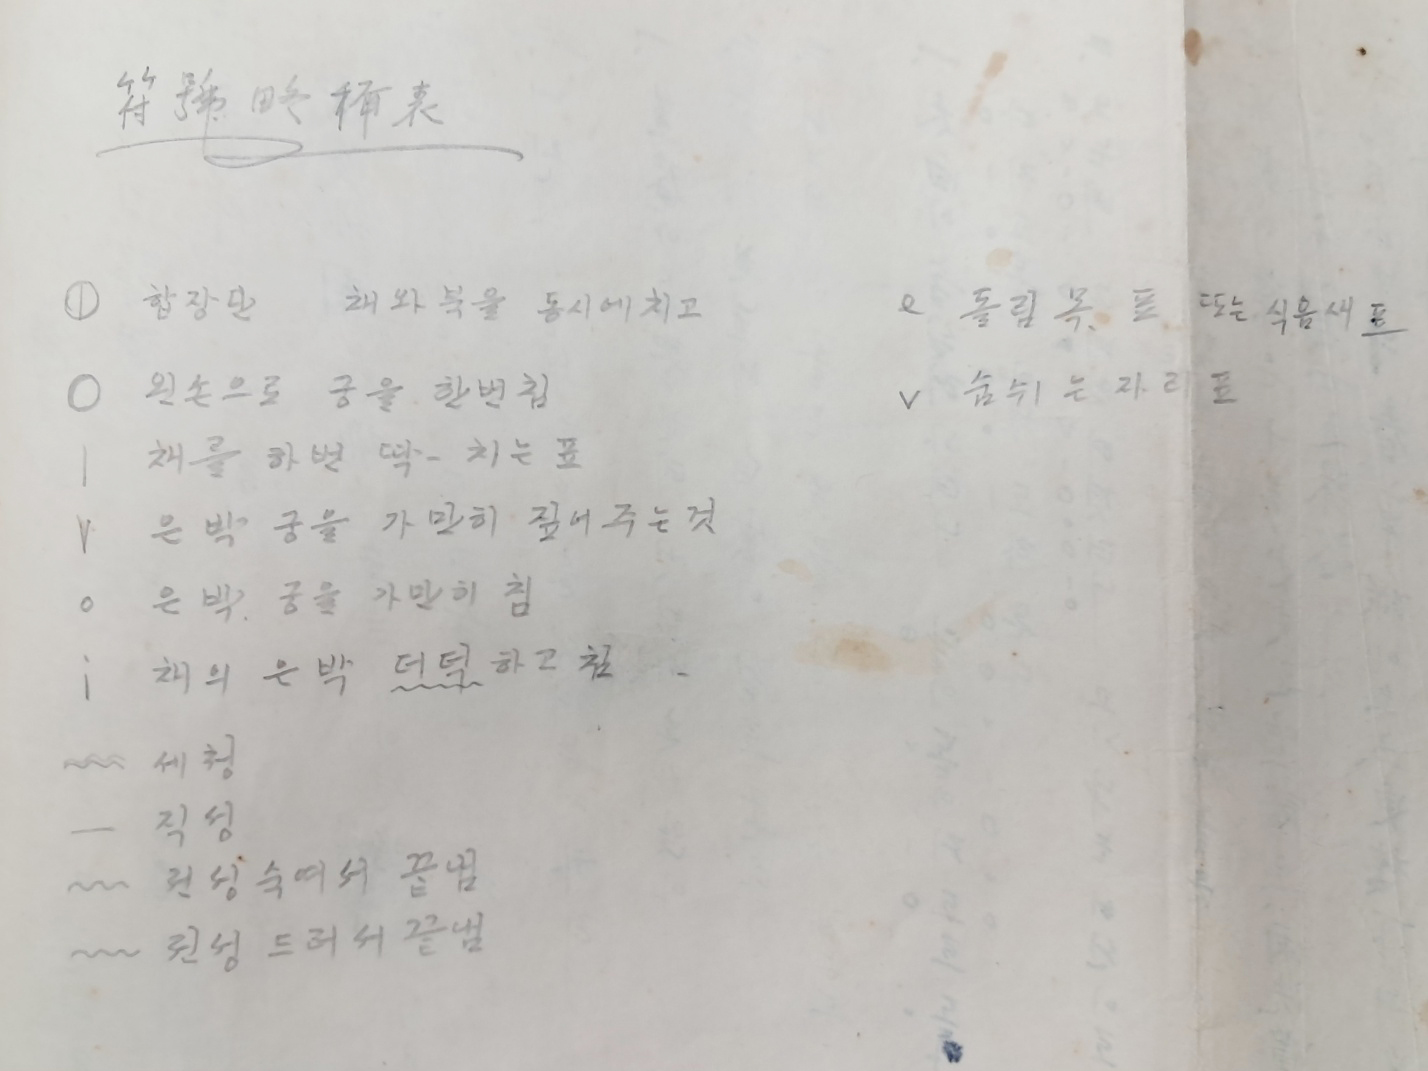 符號略稱表
① 합장단 채와 북을 동시에 치고
○ 왼손으로 궁을 한번 침
| 채를 하번 딱- 치는 표
은박 궁을 가만히 짚어주는것
o 은박. 궁을 가만히 침
i 채의 은박 더덕하고 침
〰 세청
— 직성
〰 런성 숙여서 끝냄
〰 런성 드러서 끝냄
e 돌림목. 표 또는 식음새 표
v 숨쉬는 자리 표